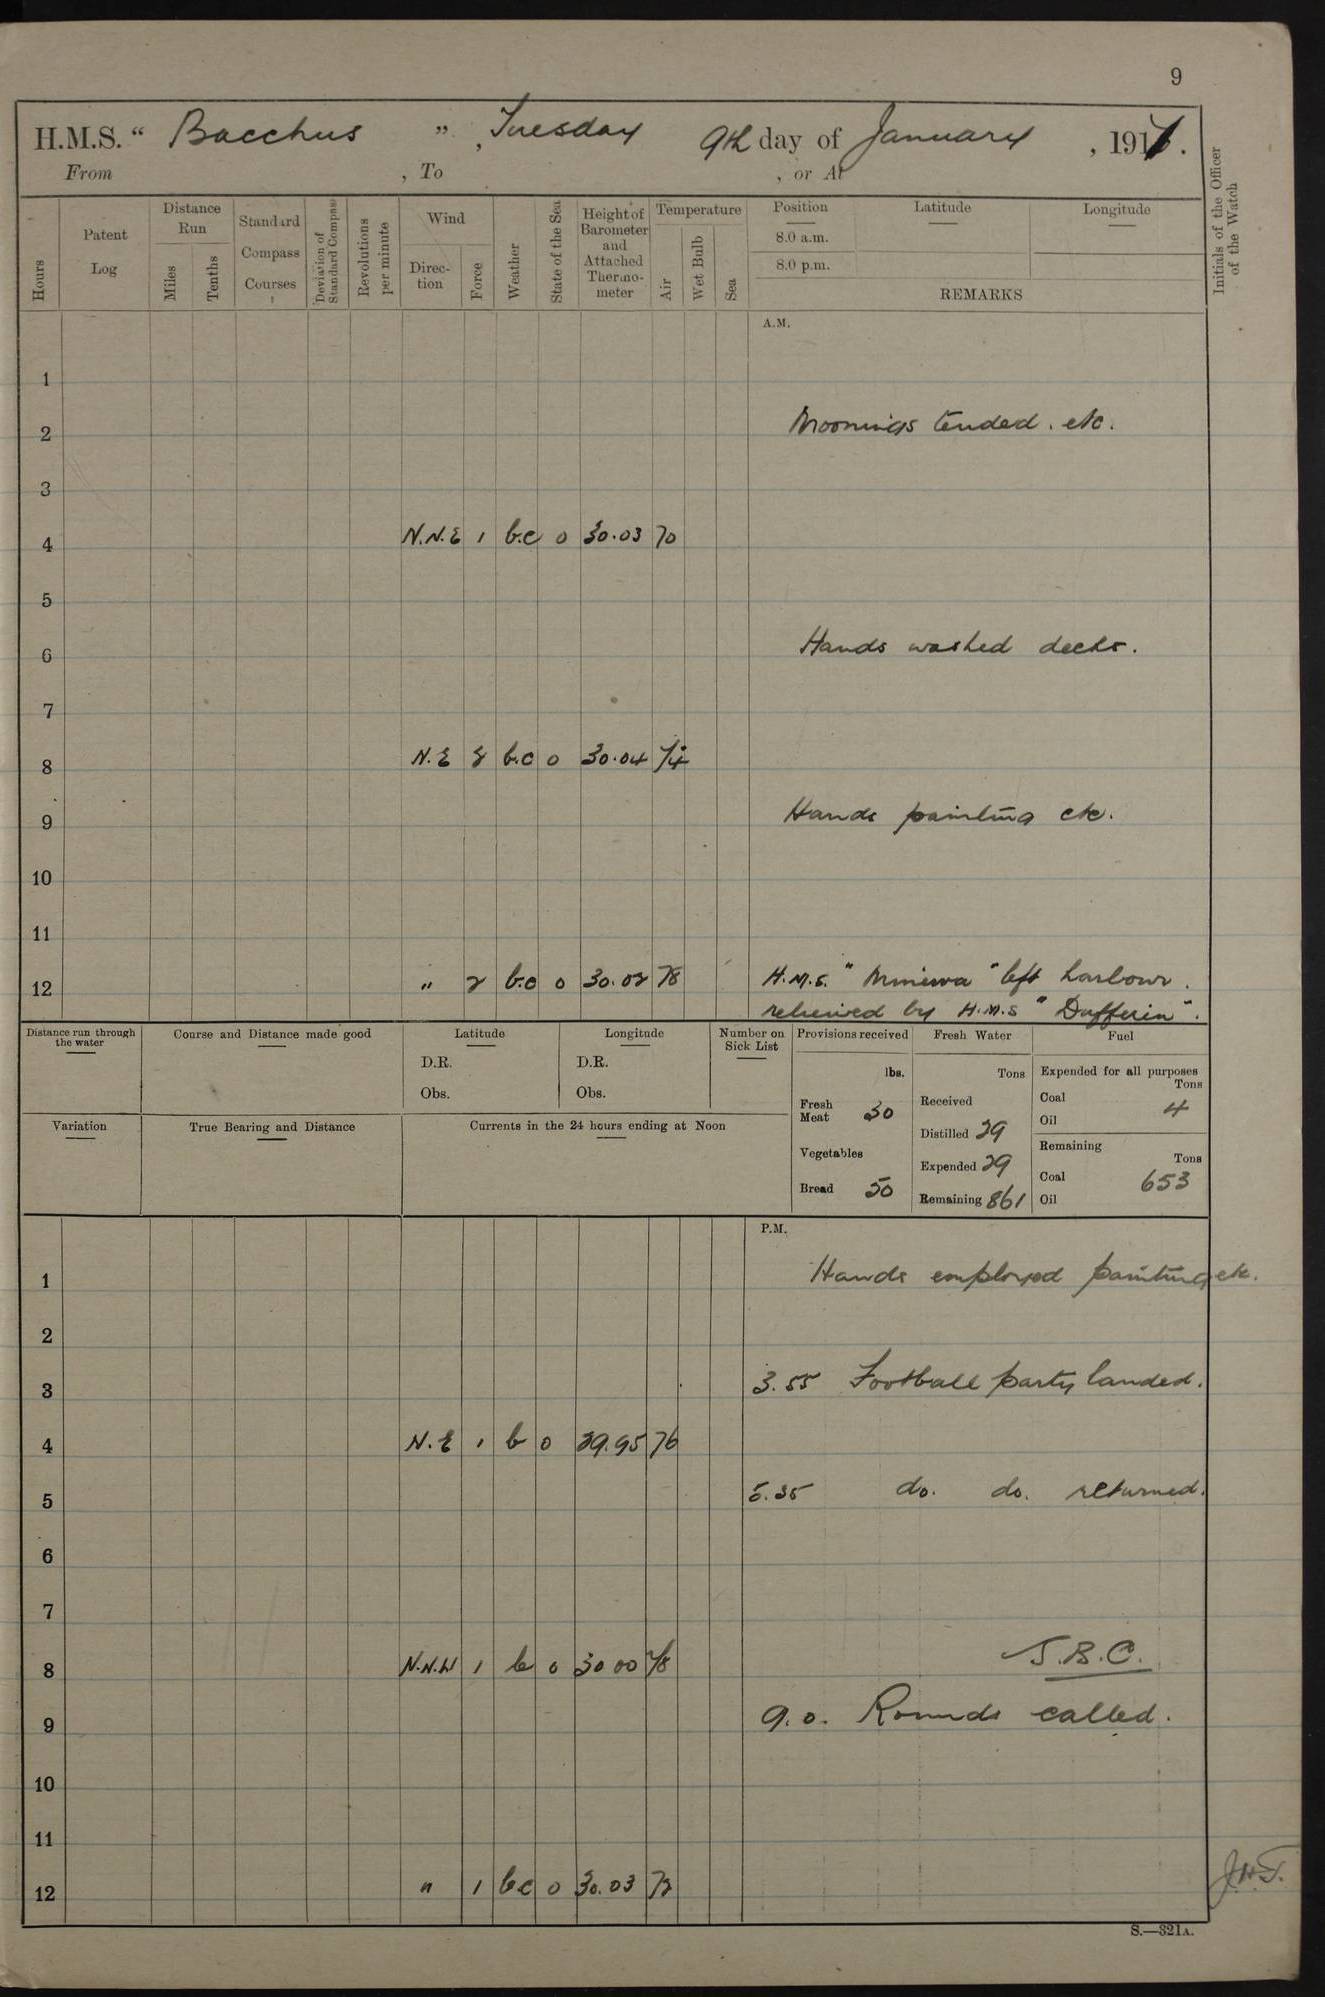 9
H.M.S. “ Bacchus ” , Tuesday 9th day of January , 1917.
From , To , or At
Initials of the Officer of the Watch
Hours
Patent Log
Distance Run
Miles
Tenths
Standard Compass Courses
Deviation of Standard Compass
Revolutions per minute
Wind
Direc-tion
Force
Weather
State of the Sea
Height of Barometer and Attached Thermo-meter
Temperature
Air
Wet Bulb
Sea
Position
8.0 a.m.
8.0 p.m.
Latitude
Longitude
REMARKS
A.M.
1
2 Moorings tended. etc.
3
4 N.N.E 1 b.c 0 30.03 70
5
6 Hands washed decks.
7
8 N.E 2 b.c 0 30.04 74
9 Hands painting etc.
10
11
12 " 2 b.c 0 30.02 78 H.M.S. "Minerva" left harbour.
relieved by H.M.S "Dufferin".
Distance run through the water
Course and Distance made good
Latitude
D.R.
Obs.
Longitude
D.R.
Obs.
Number on Sick List
Provisions received
lbs.
Fresh Meat 30
Vegetables
Bread 50
Fresh Water
Tons
Received
Distilled 29
Expended 29
Remaining 861
Fuel
Expended for all purposes
Tons
Coal 4
Oil
Remaining
Tons
Coal 653
Oil
Variation
True Bearing and Distance
Currents in the 24 hours ending at Noon
P.M.
1 Hands employed painting etc.
2
3 3.55 Football party landed.
4 N.E 1 b 0 29.95 76
5 5.35 do. do. returned.
6
7
8 N.N.W 1 b 0 30 00 78 J.B.C.
9 9.0. Rounds called.
10
11
12 " 1 bc 0 30.03 72 J.H.T.
S.—321A.